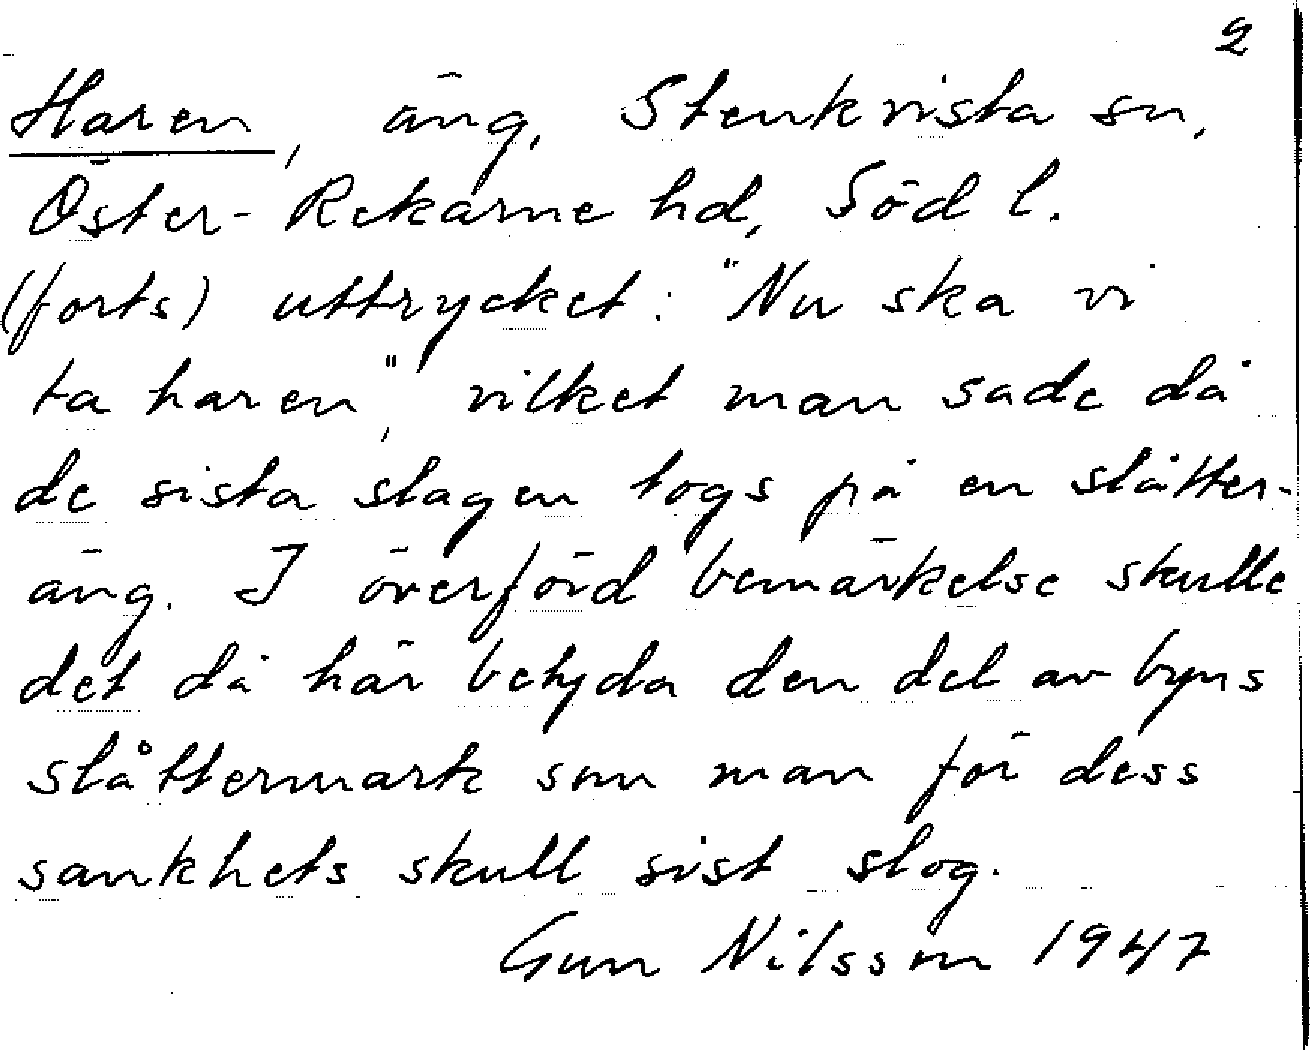 2
Haren, äng, Stenkvista sn,
Öster-Rekarne hd, Söd l.
(forts) uttrycket: "Nu ska vi
ta haren", vilket man sade då
de sista slagen togs på en slåtter-
äng. I överförd bemärkelse skulle
det då här betyda den del av byns
slåttermark som man för dess
sankhets skull sist slog.
Gun Nilsson 1947